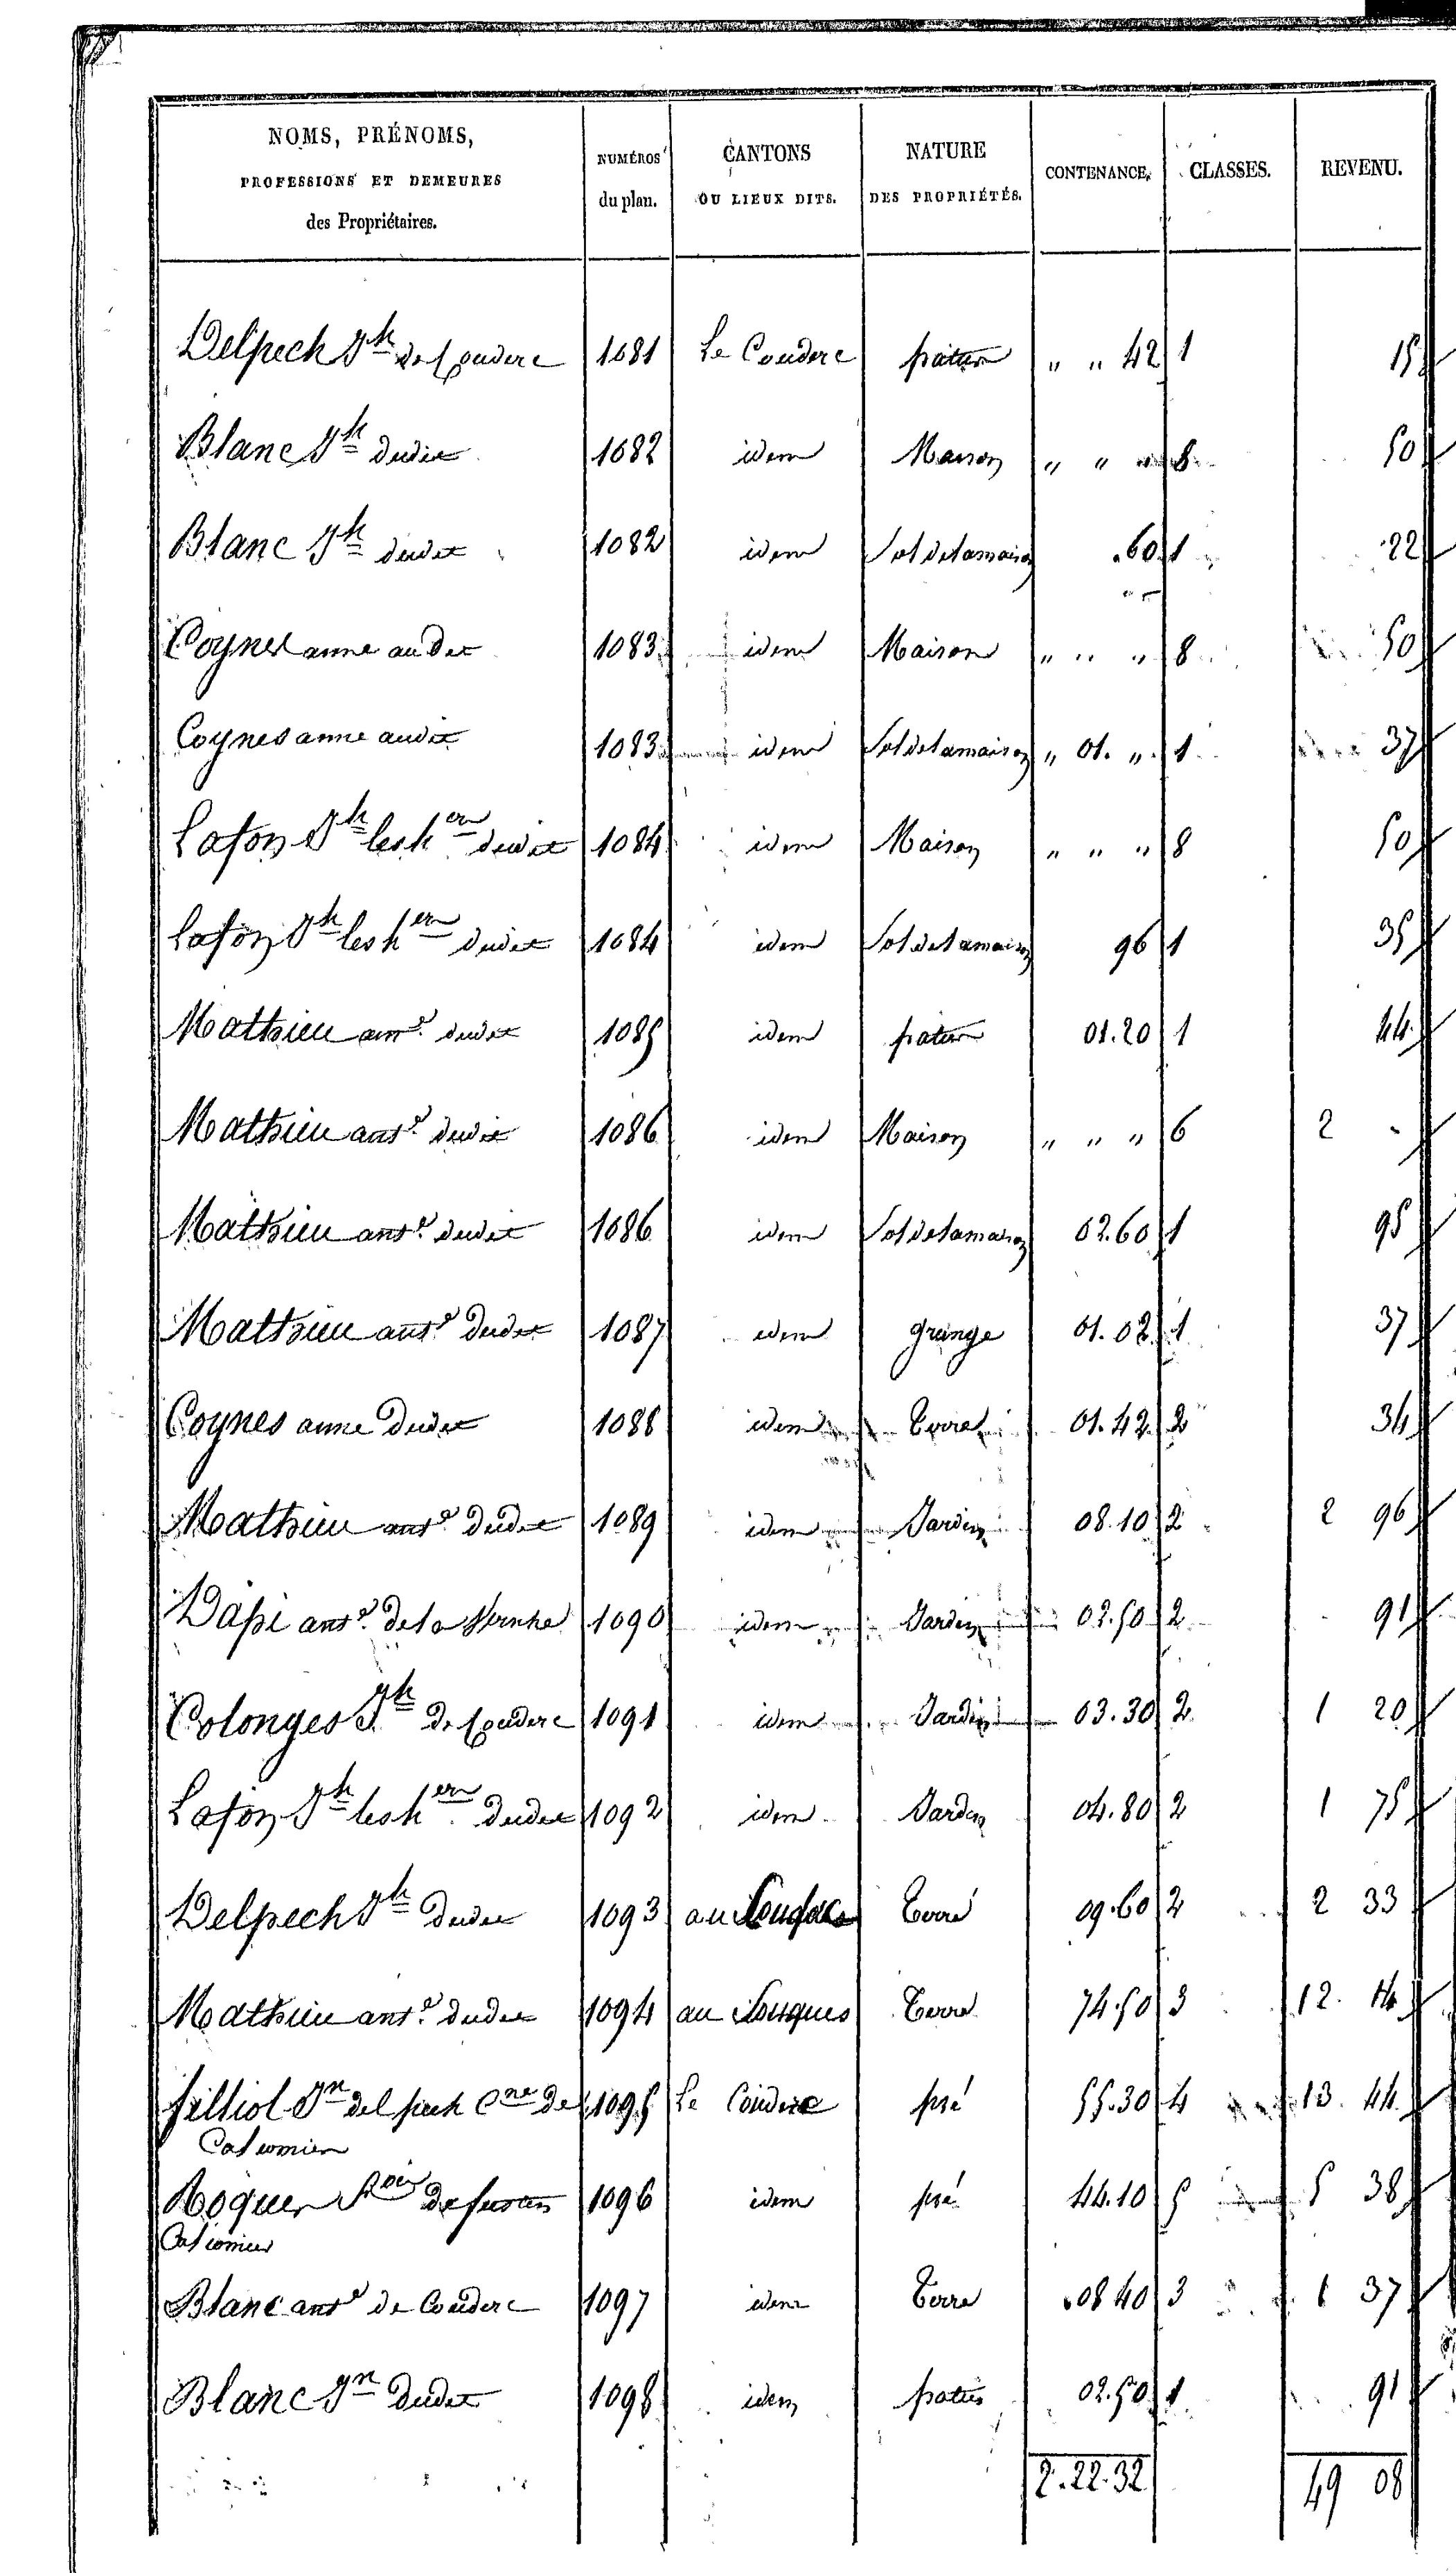 NOMS, PRÉNOMS,
PROFESSIONS ET DEMEURES
des Propriétaires.
NUMÉROS
du plan.
CANTONS
OU LIEUX DITS.
NATURE
DES PROPRIÉTÉS.
CONTENANCE.
CLASSES.
REVENU.
Delpech Jh de Couderc 1081 Le Couderc patus " " 42 1 15
Blanc Jh dudit 1082 idem Maison " " " 8 50
Blanc Jh dudit 1082 idem Sol de la maison .60 1 22
Coynes anne audit 1083 idem Maison " " " 8 50
Coynes anne audit 1083 idem Sol de la maison " 01. " 1 37
Lafon Jh les her dudit 1084 idem Maison " " " 8 50
Lafon Jh les her dudit 1084 idem Sol de la maison 96 1 35
Mathieu ante dudit 1085 idem patus 01.20 1 44
Mathieu ante dudit 1086 idem Maison " " " 6 2 "
Mathieu ante dudit 1086 idem Sol de la maison 02.60 1 95
Mathieu ante dudit 1087 idem grange 01.02 1 37
Coynes anne dudit 1088 idem Terre 01.42 2 34
Mathieu ante dudit 1089 idem Jardin 08.10 2 2 96
Dapi ante de la Vernhe 1090 idem Jardin 02.50 2 91
Colonges Jh de Couderc 1091 idem Jardin 03.30 2 1 20
Lafon Jh les her dudit 1092 idem Jardin 04.80 2 1 75
Delpech Jh dudit 1093 au Terre 09.60 2 2 33
Mathieu ante dudit 1094 au Souques Terre 74.50 3 12. 14
filliol Jn del puech Cne de 1095 Le Couderc pré 55.30 4 13. 44
Roquer de 1096 idem pré 44.10 5 5 38
Blanc ante de Couderc 1097 idem Terre 08 40 3 1 37
Blanc Jn dudit 1098 idem patus 02.50 1 91
2.22.32 49 08